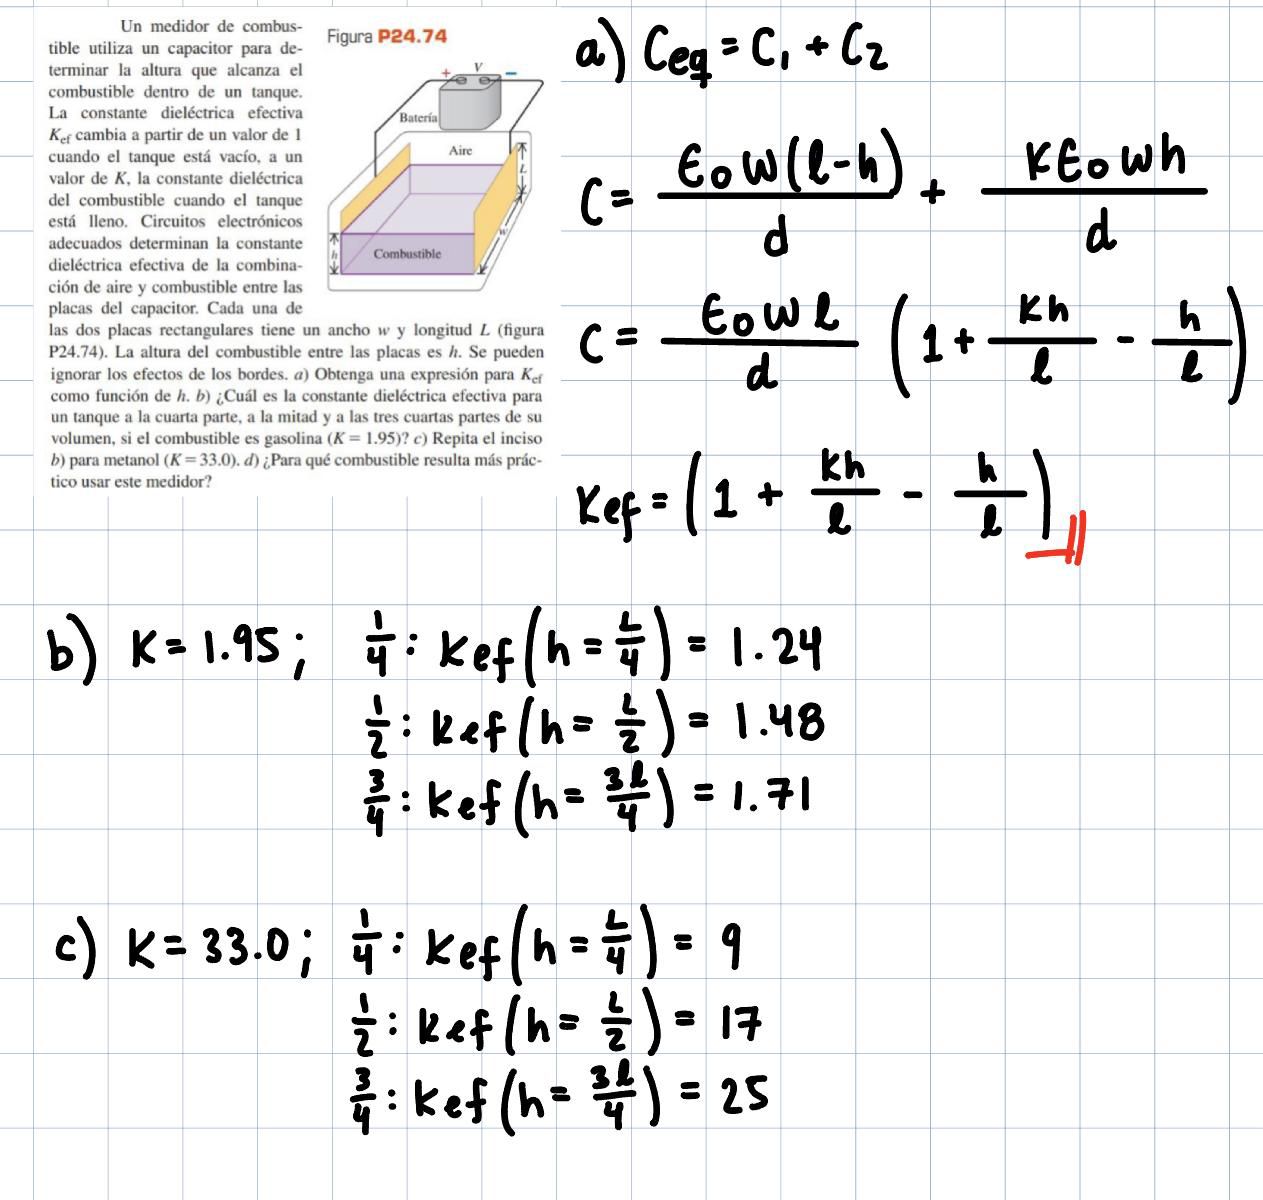 Un medidor de combus-
tible utiliza un capacitor para de-
terminar la altura que alcanza el
combustible dentro de un tanque.
La constante dieléctrica efectiva
K_ef cambia a partir de un valor de 1
cuando el tanque está vacío, a un
valor de K, la constante dieléctrica
del combustible cuando el tanque
está lleno. Circuitos electrónicos
adecuados determinan la constante
dieléctrica efectiva de la combina-
ción de aire y combustible entre las
placas del capacitor. Cada una de
las dos placas rectangulares tiene un ancho w y longitud L (figura
P24.74). La altura del combustible entre las placas es h. Se pueden
ignorar los efectos de los bordes. a) Obtenga una expresión para K_ef
como función de h. b) ¿Cuál es la constante dieléctrica efectiva para
un tanque a la cuarta parte, a la mitad y a las tres cuartas partes de su
volumen, si el combustible es gasolina (K = 1.95)? c) Repita el inciso
b) para metanol (K = 33.0). d) ¿Para qué combustible resulta más prác-
tico usar este medidor?
Figura P24.74
+ V −
Batería
Aire
L
w
h
Combustible
a) Ceq = C₁ + C₂
C = ϵ₀w(l-h)/d + Kϵ₀wh/d
C = ϵ₀wl/d (1 + Kh/l - h/l)
Kef = (1 + Kh/l - h/l)
b) K = 1.95; 1/4 : Kef(h = L/4) = 1.24
1/2 : Kef(h = L/2) = 1.48
3/4 : Kef(h = 3l/4) = 1.71
c) K = 33.0; 1/4 : Kef(h = L/4) = 9
1/2 : Kef(h = L/2) = 17
3/4 : Kef(h = 3l/4) = 25